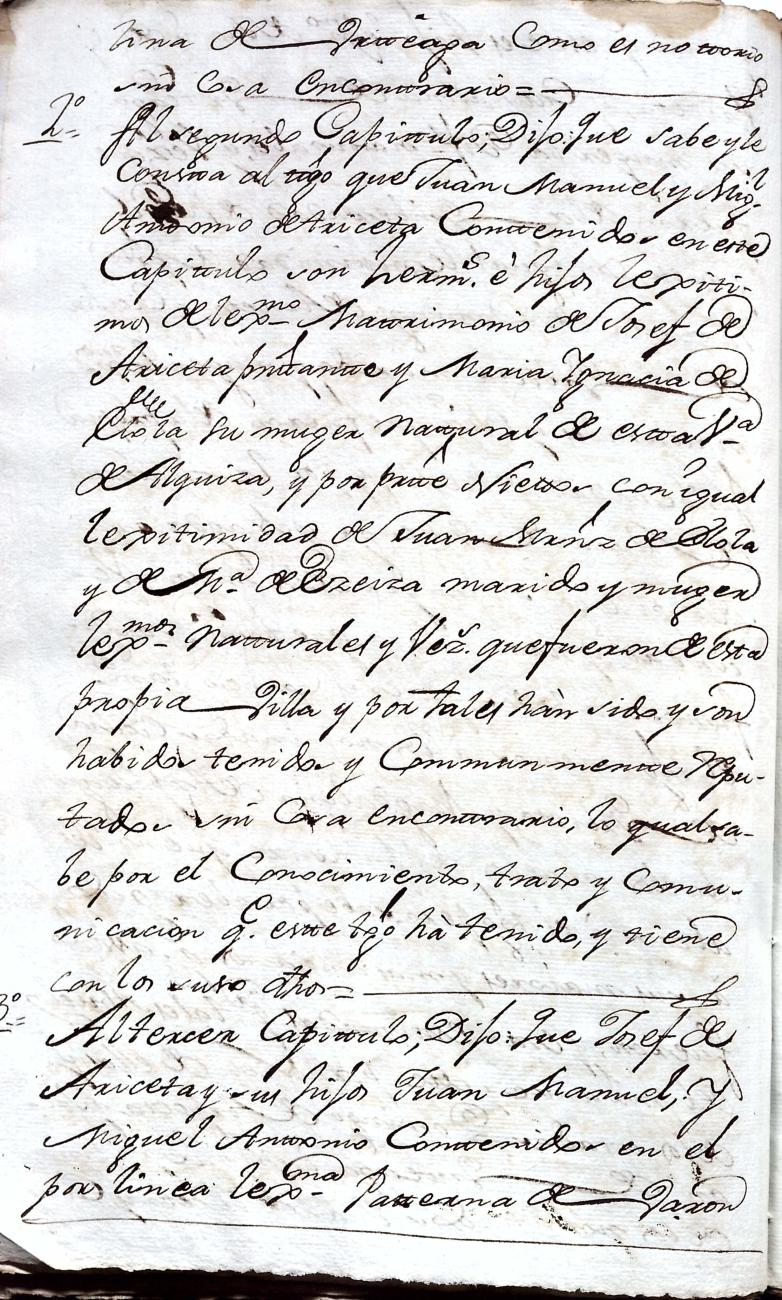 tina de Arteaga Como es nottorio
sin Cosa encontrario=
2º= Al segundo Capittulo; Dijo: que sabe y le
Constta al ttgo que Juan Manuel, y Migl
Anttonio de Ariceta Conttenidos en estte
Capittulo son hermS. è hijos lexiti-
mos de lexmo Mattrimonio de Josef de
Ariceta pnttantte y Maria Ignacia de
Elola su muger Natural de estta Va
de Alquiza, y por partte Niettos con igual
lexitimidad de Juan Mrñz de Elola
y de Ma de Ezeiza marido y muger
lexmos Natturales y Vezs. que fueron de estta
propia Villa y por tales hàn sido y son
habidos tenidos y Communmentte Repu-
tados sin Cosa encontrario, lo qual sa-
be por el Conocimientto, tratto y Comu-
nicacion q.e estte ttgo hà tenido, y tiene
con los suso dthos=
3º= Al tercer Capittulo; Dijo: que Josef de
Ariceta y sus hijos Juan Manuel, y
Miguel Anttonio Conttenidos en el
por linea lexma Patterna de Varon